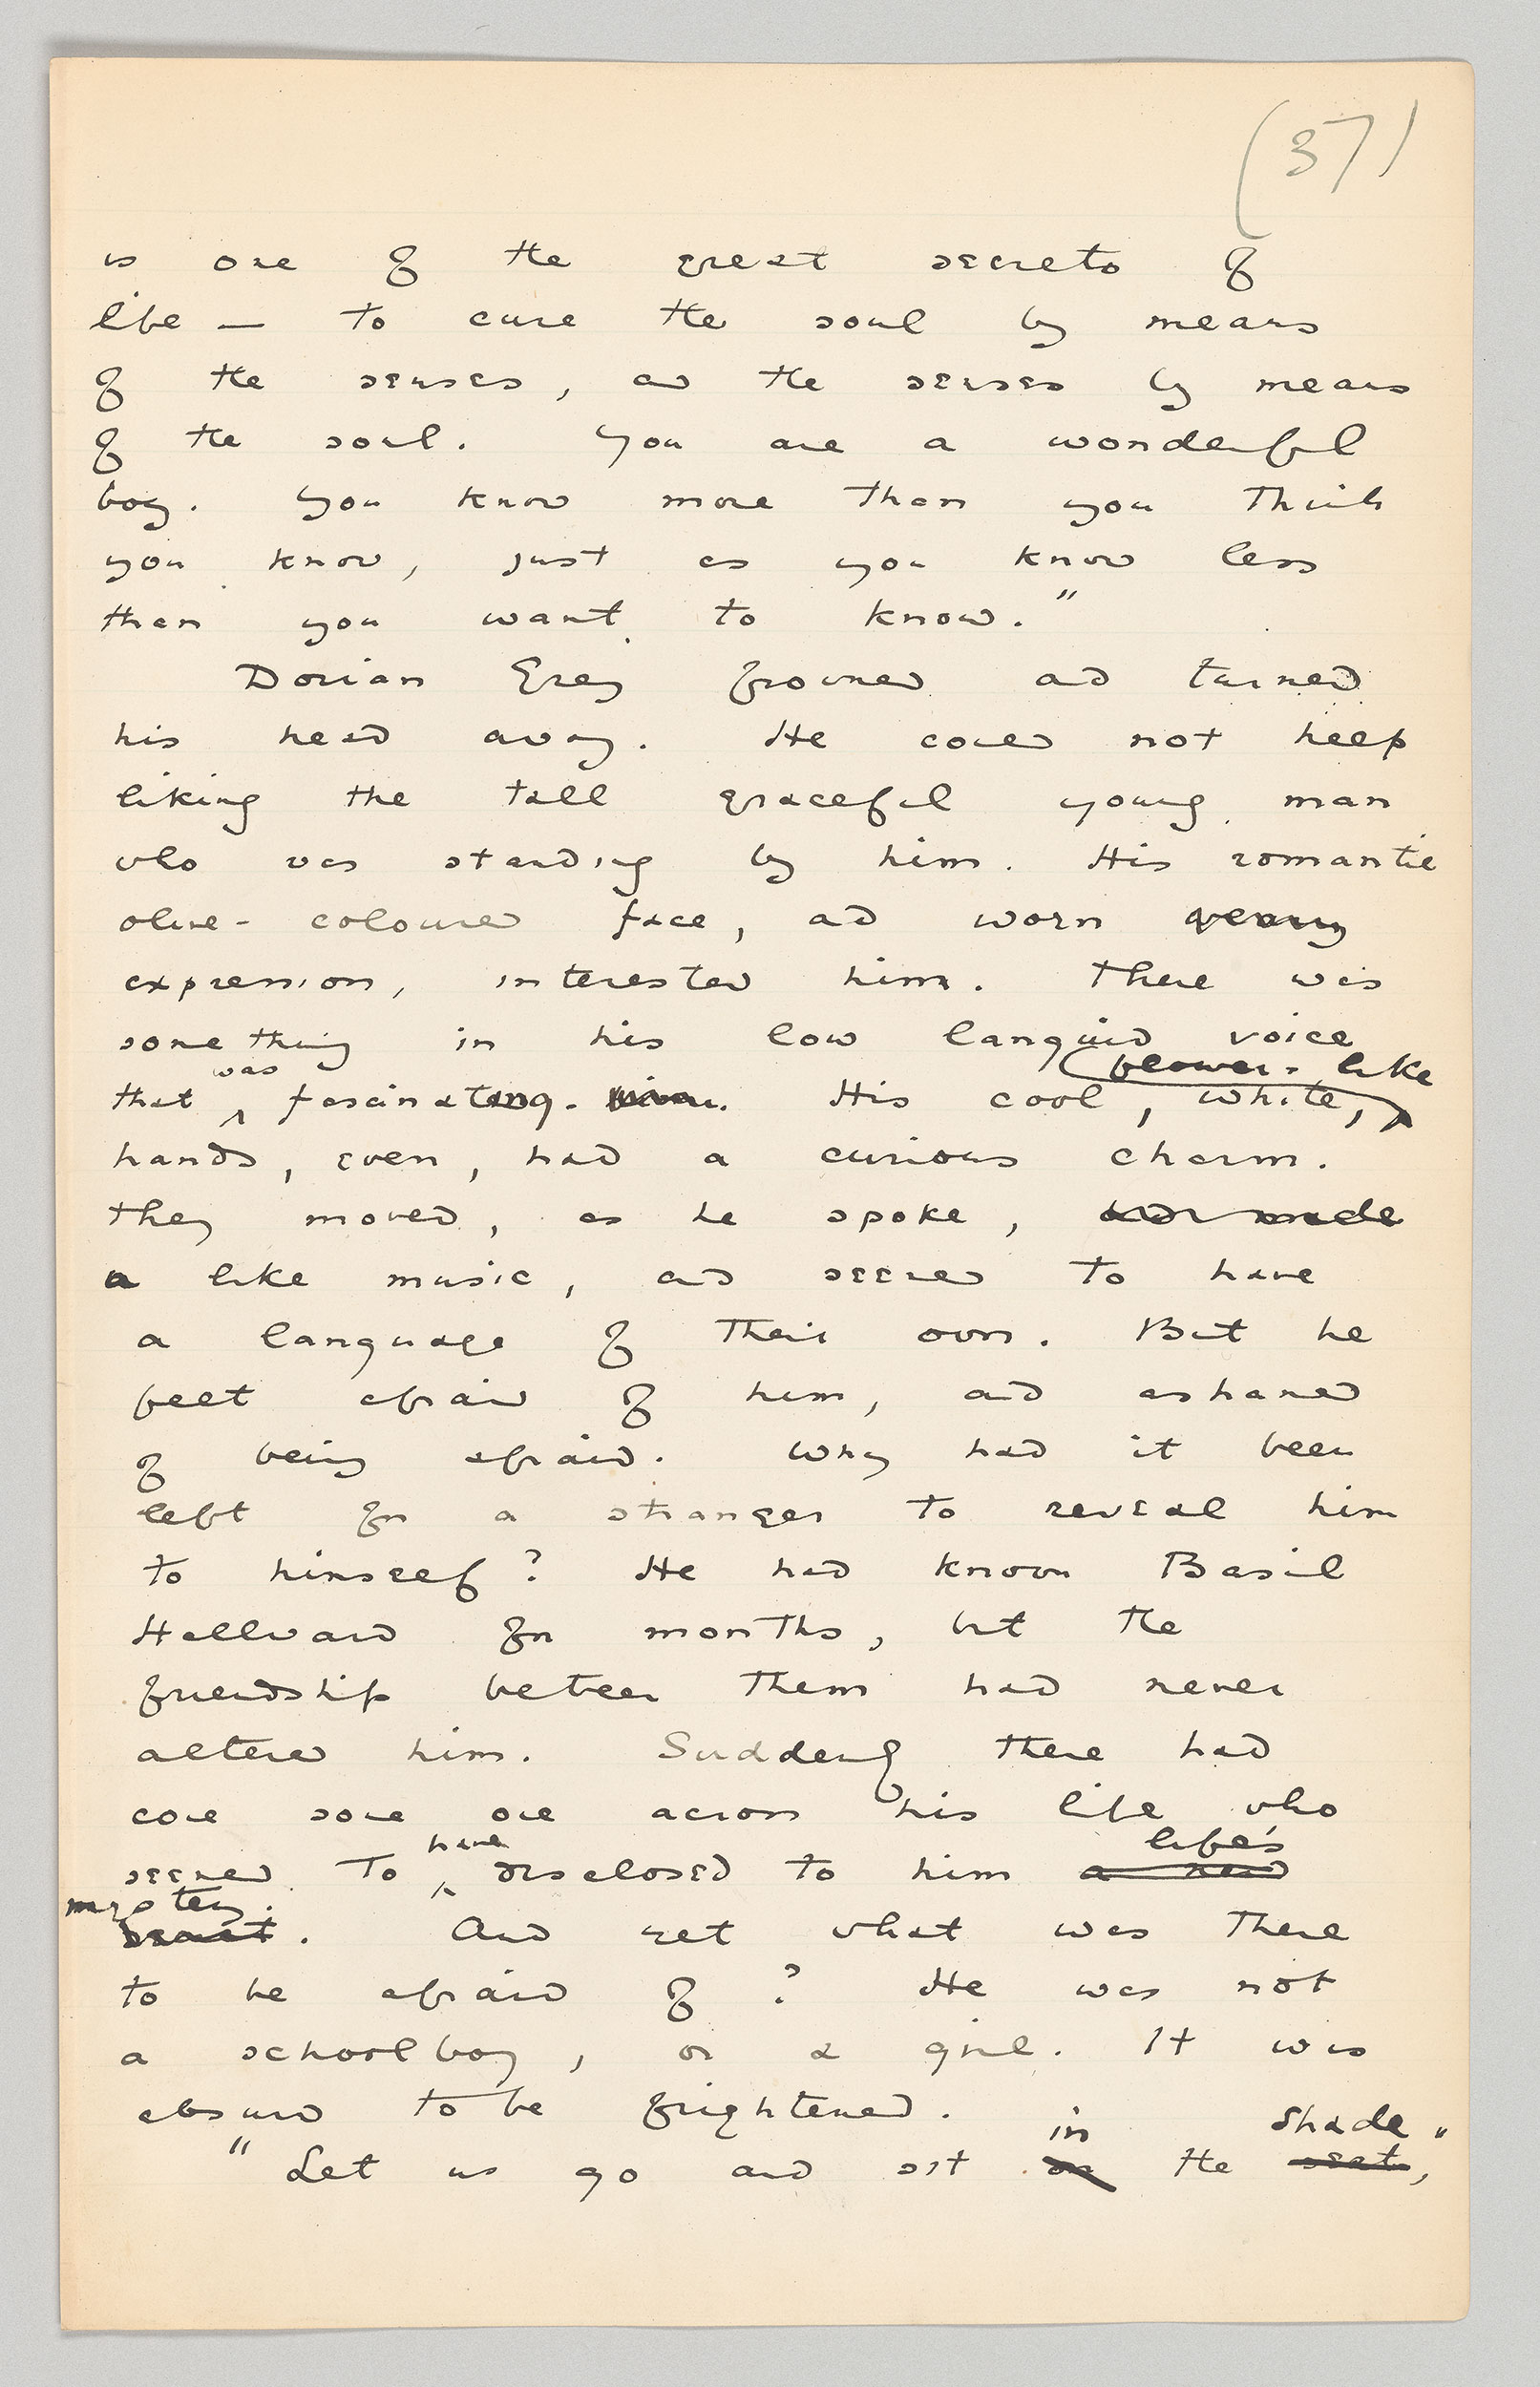 (37)
is one of the great secrets of
life — to cure the soul by means
of the senses, and the senses by means
of the soul. You are a wonderful
boy. You know more than you think
you know, just as you know less
than you want to know."
Dorian Grey frowned and turned
his head away. He could not help
liking the tall graceful young man
who was standing by him. His romantic
olive-coloured face, and worn
expression, interested him. There was
something in his low languid voice
flower-like
was
that fascinating. His cool, white,
hands, even, had a curious charm.
They moved, as he spoke, and made
a like music, and seemed to have
a language of their own. But he
felt afraid of him, and ashamed
of being afraid. Why had it been
left for a stranger to reveal him
to himself? He had known Basil
Hallward for months, but the
friendship between them had never
altered him. Suddenly there had
come some one across his life who
have life's
seemed to disclosed to him a new
mystery.
. And yet what was there
to be afraid of? He was not
a schoolboy, or a girl. It was
absurd to be frightened.
in shade"
"Let us go and sit on the seat,